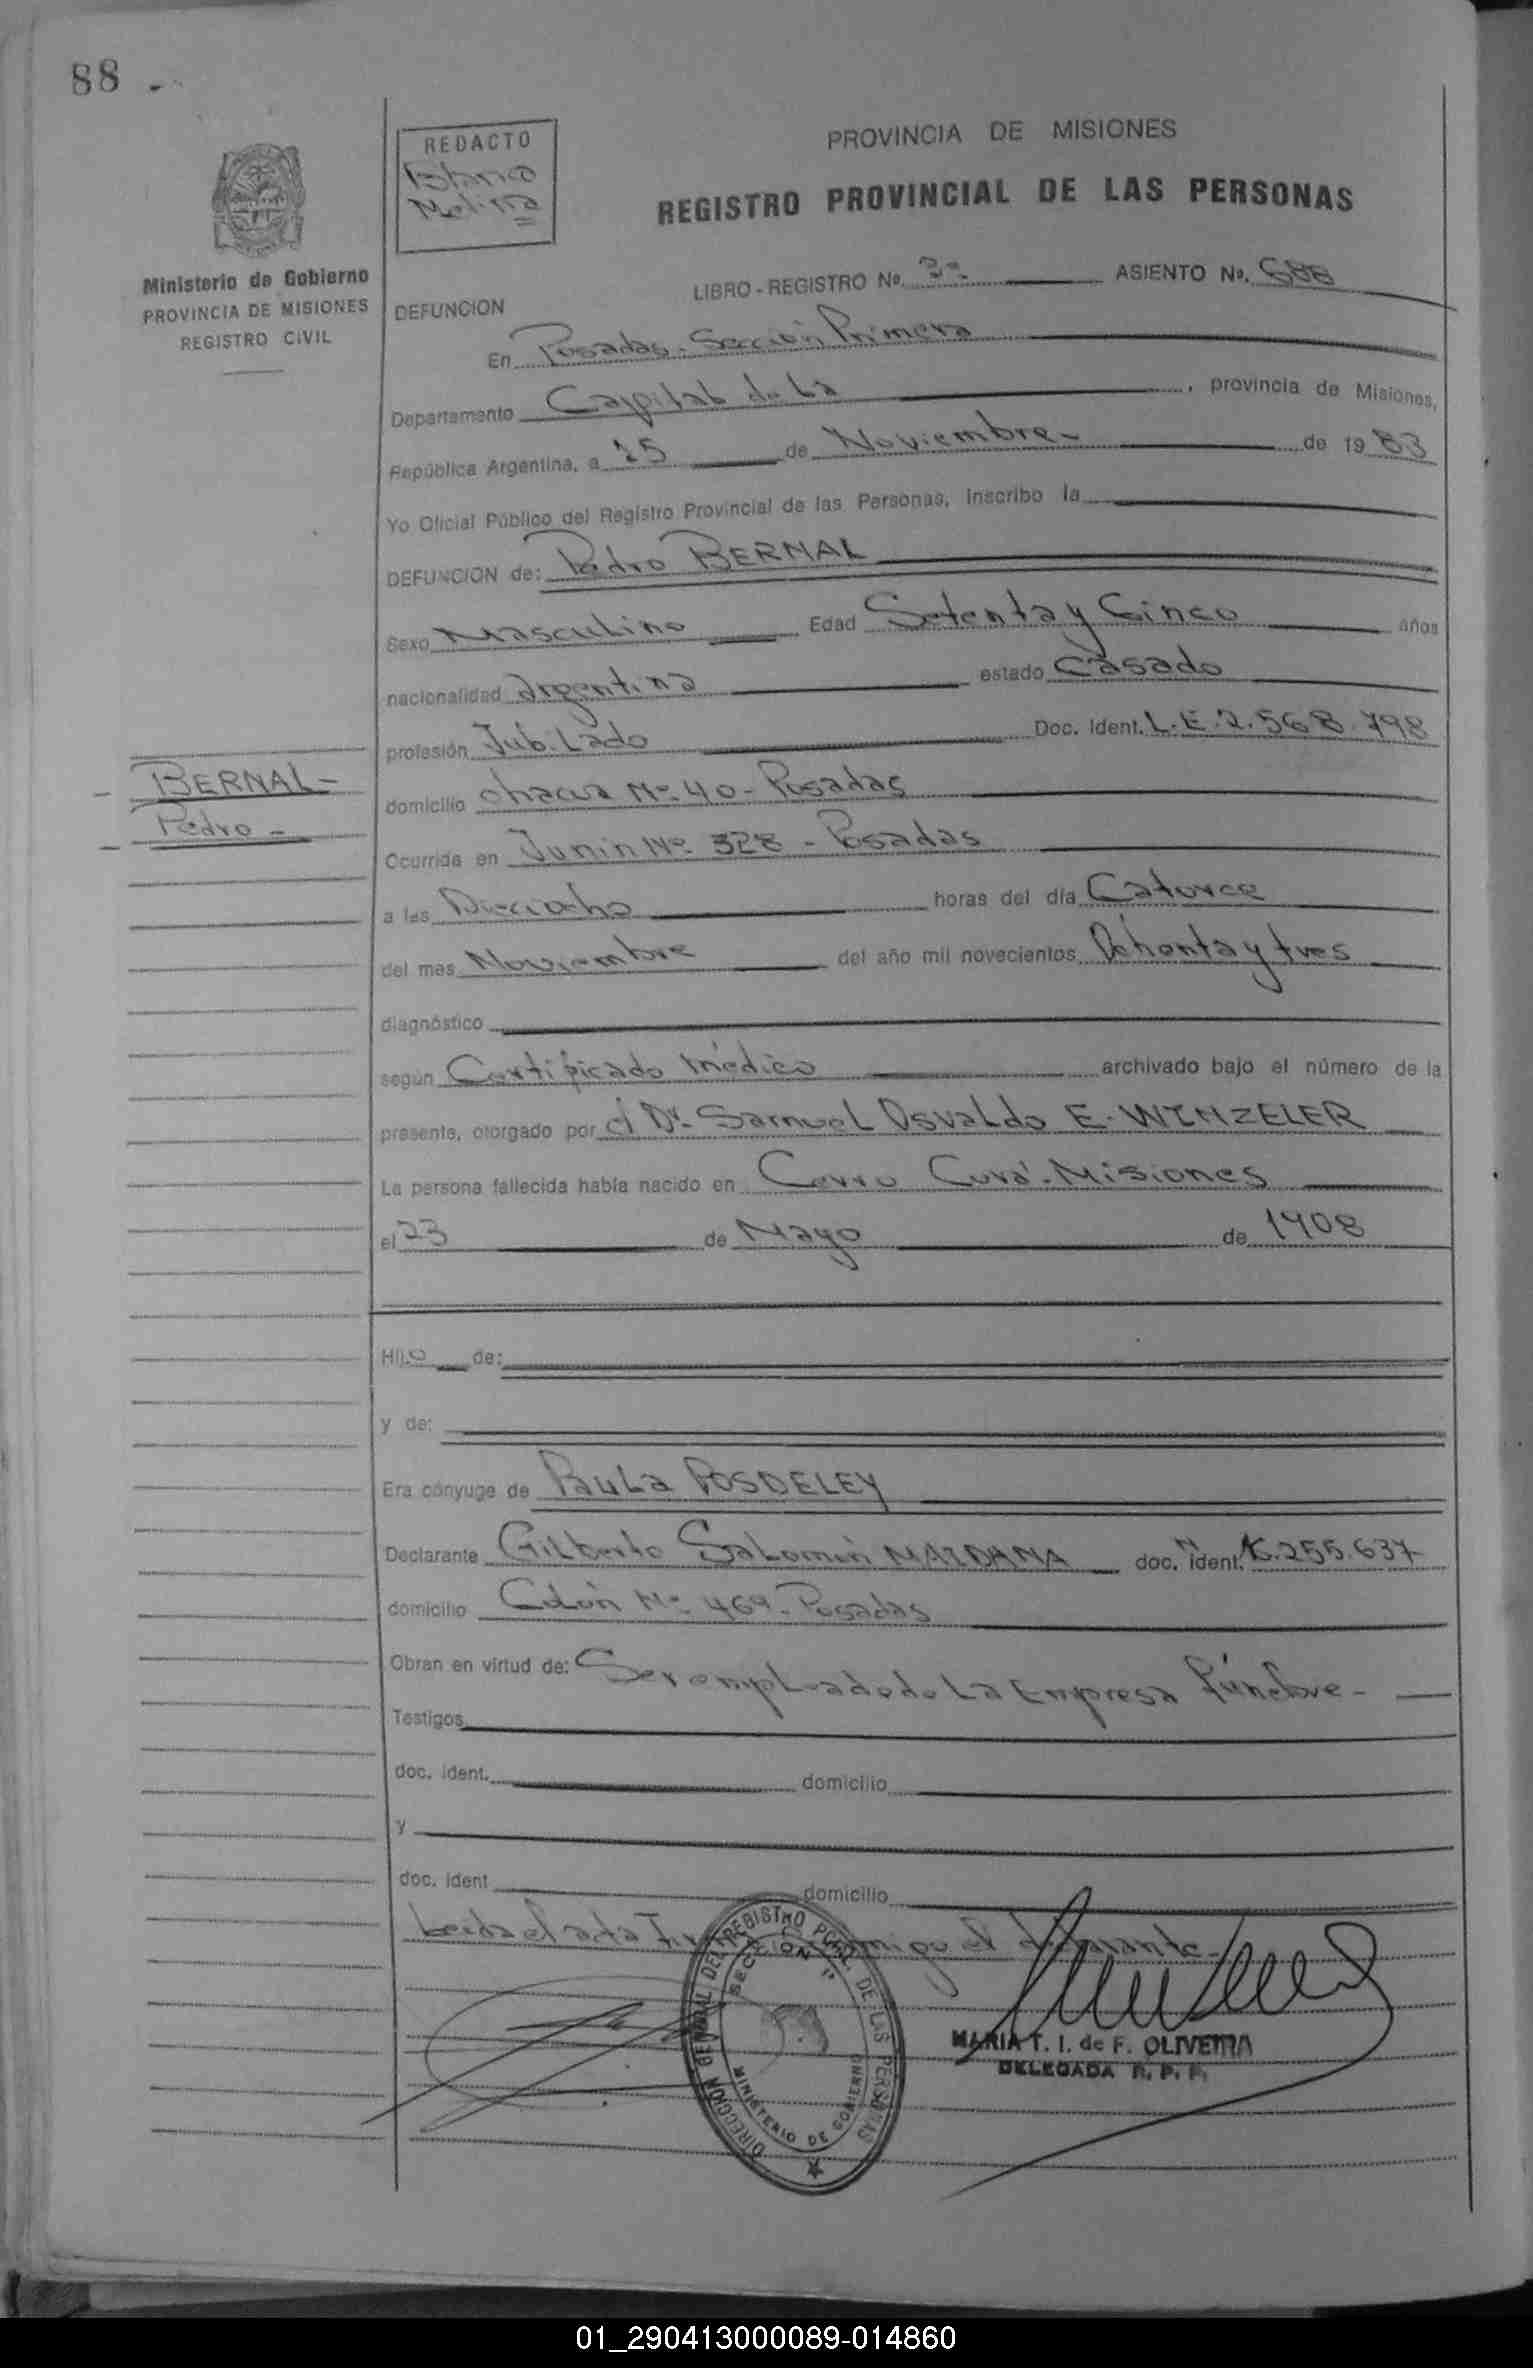 88 -
REDACTO
Blanco
Melissa
Ministerio de Gobierno
PROVINCIA DE MISIONES
REGISTRO CIVIL
PROVINCIA DE MISIONES
REGISTRO PROVINCIAL DE LAS PERSONAS
LIBRO - REGISTRO Nº. ASIENTO Nº. 688
DEFUNCION
En Posadas - Sección Primera
Departamento Capital de la , provincia de Misiones,
República Argentina, a 15 de Noviembre - de 1983
Yo Oficial Público del Registro Provincial de las Personas, inscribo la
DEFUNCION de: Pedro BERNAL
Sexo Masculino Edad Setenta y Cinco años
nacionalidad Argentina estado Casado
profesión Jubilado Doc. Ident. L.E. 2.568.798
BERNAL -
Pedro -
domicilio chacra Nº 40 - Posadas
Ocurrida en Junin Nº 328 - Posadas
a las Dieciocho horas del día Catorce
del mes Noviembre del año mil novecientos Ochenta y tres
diagnóstico
según Certificado médico archivado bajo el número de la
presente, otorgado por el Dr. Samuel Osvaldo E. WINZELER
La persona fallecida había nacido en Cerro Corá - Misiones
el 23 de Mayo de 1908
Hijo de:
y de:
Era cónyuge de Paula POSDELEY
Declarante Gilberto Salomón MAIDANA doc. ident. 255.637
domicilio Colón Nº 469 - Posadas
Obran en virtud de: Ser empleado de La Empresa Fúnebre -
Testigos
doc. ident. domicilio
y
doc. ident domicilio
Leida el acta conmigo el declarante -
DIRECCION GENERAL DEL REGISTRO PCIAL. DE LAS PERSONAS
SECCION 1ª
MINISTERIO DE GOBIERNO
MARIA T. I. de F. OLIVEIRA
DELEGADA R. P. P.
01_290413000089-014860